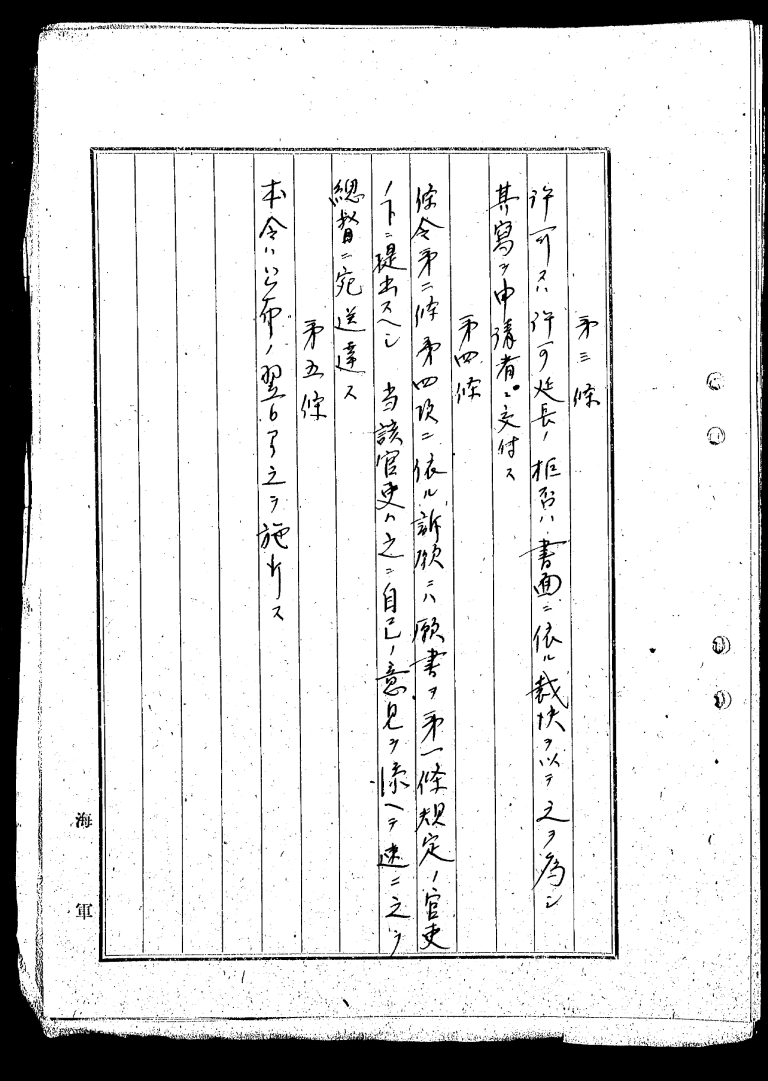 第三條
許可又ハ許可延長ノ拒否ハ書面ニ依ル裁決ヲ以テ之ヲ為シ
其寫ヲ申請者ニ交付ス
第四條
條令第二條第四項ニ依ル訴願ニハ願書ヲ第一條規定ノ官吏
ノ下ニ提出スヘシ 当該官吏ハ之ニ自己ノ意見ヲ添ヘテ速ニ之ヲ
總督ニ宛送達ス
第五條
本令ハ公布ノ翌日ヨリ之ヲ施行ス
海軍